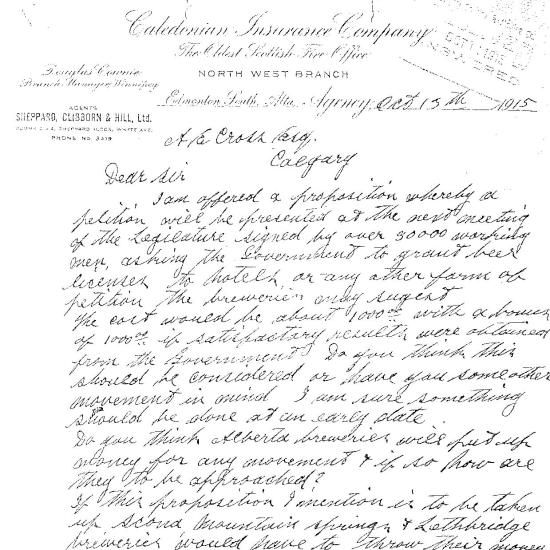 Caledonian Insurance Company
The Oldest Scottish Fire Office
NORTH WEST BRANCH
Douglas Cownie
Branch Manager Winnipeg
AGENTS
SHEPPARD, CLIBBORN & HILL, Ltd.
PHONE NO. 3419
Edmonton South, Alta. Agency, Oct 13th 1915
A E Cross Esq.
Calgary
Dear Sir
I am offered a proposition whereby a
petition will be presented at the next meeting
of the Legislature signed by over 30000 working
men, asking the Government to grant beer
licenses to hotels, or any other form of
petition the breweries may sugest
The cost would be about 1000.00 with a bonus
of 1000.00 if satisfactory results were obtained
from the Government. Do you think this
should be considered or have you some other
movement in mind I am sure something
should be done at an early date.
Do you think Alberta breweries will put up
money for any movement & if so how are
they to be approached?
If this proposition I mention is to be taken
up mountain springs & Lethbridge
breweries would have to throw their money